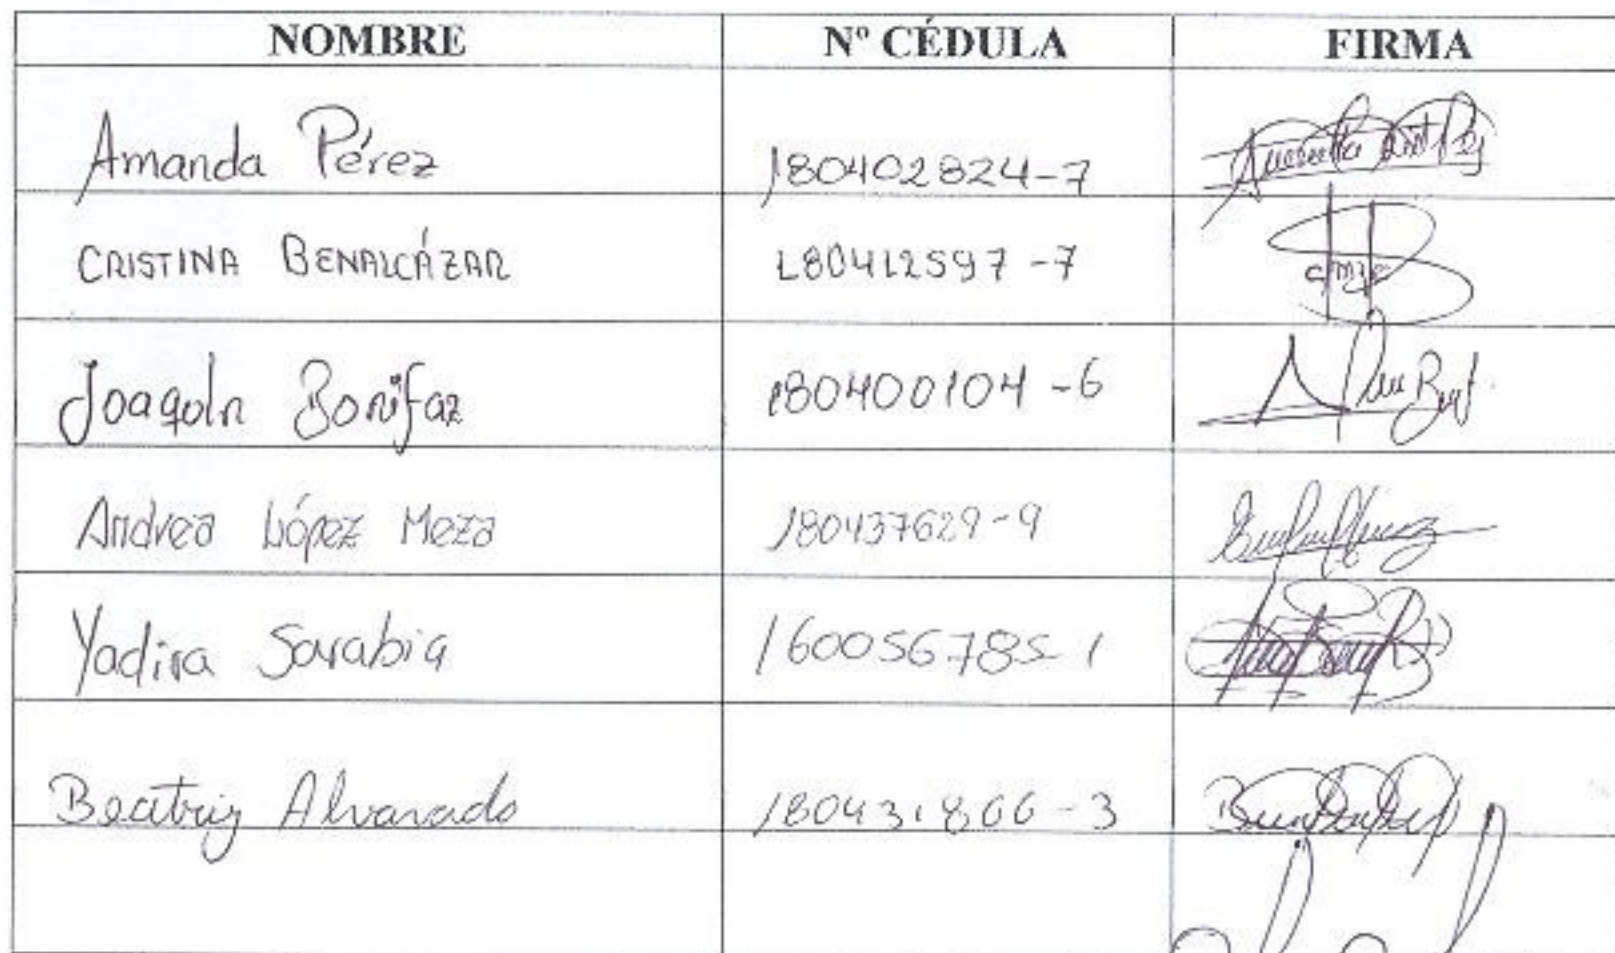 NOMBRE Nº CÉDULA FIRMA
Amanda Pérez 180402824-7
CRISTINA BENALCÁZAR 180412597-7
Joaquín Bonifaz 180400104-6
Andrea López Meza 180437629-9
Yadira Sarabia 160056785-1
Beatriz Alvarado 180431866-3